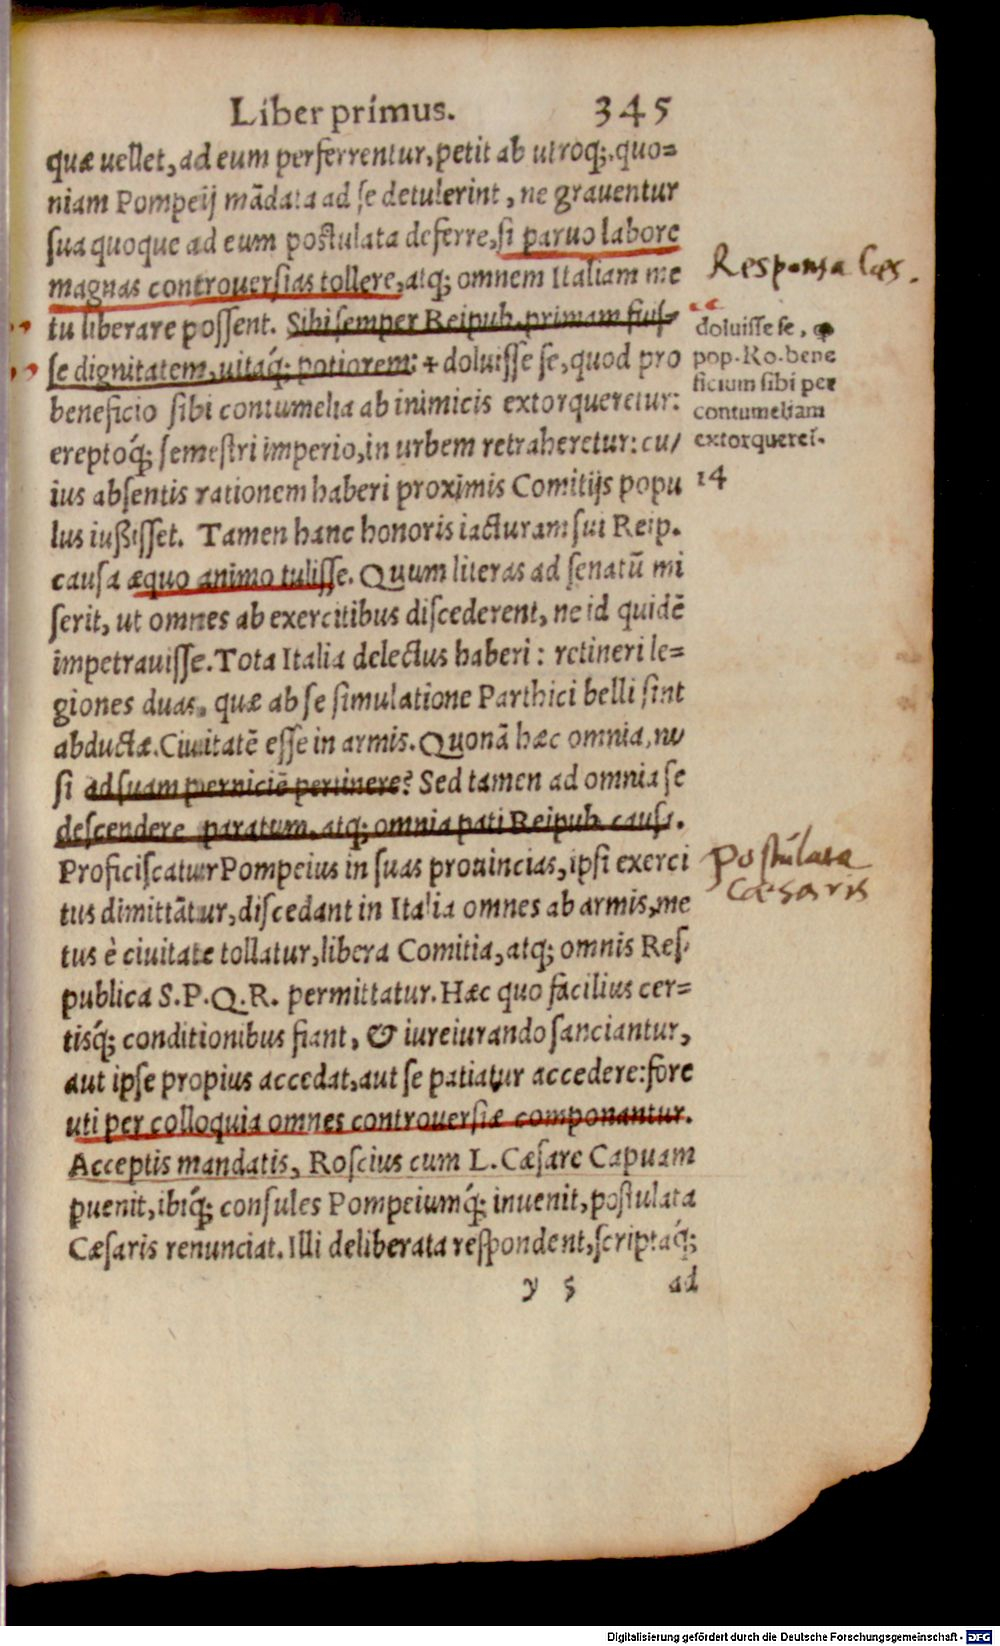 Liber primus. 345
quæ uellet, ad eum perferrentur, petit ab utroq;, quo=
niam Pompeij mādata ad se detulerint, ne grauentur
sua quoque ad eum postulata deferre, si paruo labore
magnas controuersias tollere, atq; omnem Italiam me
tu liberare possent. Sibi semper Reipub. primam fuis-
se dignitatem, uitaq́; potiorem: + doluisse se, quod pro
beneficio sibi contumelia ab inimicis extorqueretur:
ereptoq́; semestri imperio, in urbem retraheretur: cu/
ius absentis rationem haberi proximis Comitijs popu
lus iußisset. Tamen hanc honoris iacturam sui Reip.
causa æquo animo tulisse. Quum literas ad senatū mi
serit, ut omnes ab exercitibus discederent, ne id quidē
impetrauisse. Tota Italia delectus haberi: retineri le=
giones duas, quæ ab se simulatione Parthici belli sint
abductæ. Ciuitatē esse in armis. Quonā hæc omnia, ni
si ad suam perniciē pertinere? Sed tamen ad omnia se
descendere paratum, atq; omnia pati Reipub. causa.
Proficiscatur Pompeius in suas prouincias, ipsi exerci
tus dimittātur, discedant in Italia omnes ab armis, me
tus è ciuitate tollatur, libera Comitia, atq; omnis Res
publica S.P.Q.R. permittatur. Hæc quo facilius cer=
tisq́; conditionibus fiant, & iureiurando sanciantur,
aut ipse propius accedat, aut se patiatur accedere: fore
uti per colloquia omnes controuersiæ componantur.
Acceptis mandatis, Roscius cum L. Cæsare Capuam
puenit, ibiq́; consules Pompeiumq́; inuenit, postulata
Cæsaris renunciat. Illi deliberata respondent, scriptaq́;
y 5 ad
Responsa Cæs.
doluisse se, q
pop. Ro. bene
ficium sibi per
contumeliam
extorqueret.
14
Postulata
Cæsaris
Digitalisierung gefördert durch die Deutsche Forschungsgemeinschaft - DFG